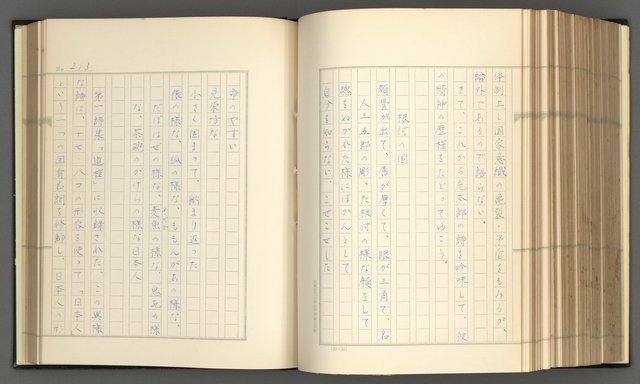 体制上と国家意識の亀裂・矛盾をもつが、
論外であるので語らない。
さて、これから光太郎の詩を吟味して、彼
の精神の歴程をたどってゆこう。
根付の国
頬骨が出て、唇が厚くて、眼が三角で、名
人三五郎の彫った根付の様な顔をして
魂をぬかれた様にぽかんとして
自分を知らない、こせこせした
命のやすい
見栄坊な
小さく固まって、納まり返った
猿の様な、狐の様な、ももんがあの様な、
だぼはぜの様な、麦魚の様な、鬼瓦の様
な、茶碗のかけらの様な日本人
第一詩集「道程」に収録された、この異様
な詩は、十七・八つの形容を使って「日本人」
という一つの固有名詞を修飾し、日本人の形
No. 213